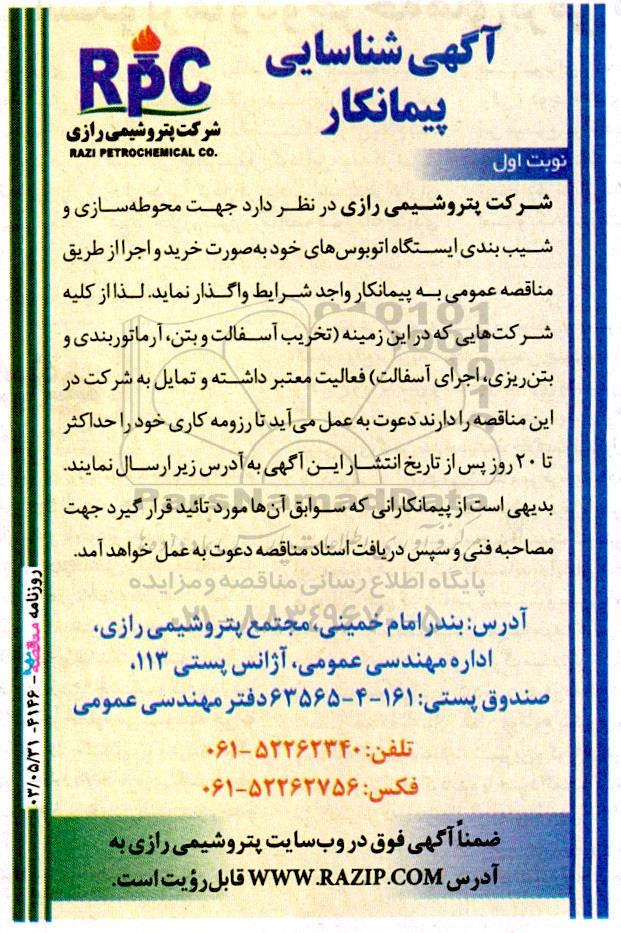 آگهی شناسایی
پیمانکار
RPC
شرکت پتروشیمی رازی
RAZI PETROCHEMICAL CO.
نوبت اول
شرکت پتروشیمی رازی در نظر دارد جهت محوطه‌سازی و
شیب بندی ایستگاه اتوبوس‌های خود به‌صورت خرید و اجرا از طریق
مناقصه عمومی به پیمانکار واجد شرایط واگذار نماید. لذا از کلیه
شرکت‌هایی که در این زمینه (تخریب آسفالت و بتن، آرماتوربندی و
بتن‌ریزی، اجرای آسفالت) فعالیت معتبر داشته و تمایل به شرکت در
این مناقصه را دارند دعوت به عمل می‌آید تا رزومه کاری خود را حداکثر
تا ۲۰ روز پس از تاریخ انتشار این آگهی به آدرس زیر ارسال نمایند.
ParsNamadData
بدیهی است از پیمانکارانی که سوابق آن‌ها مورد تائید قرار گیرد جهت
مصاحبه فنی و سپس دریافت اسناد مناقصه دعوت به عمل خواهد آمد.
پایگاه اطلاع رسانی مناقصه و مزایده
آدرس: بندر امام خمینی، مجتمع پتروشیمی رازی،
اداره مهندسی عمومی، آژانس پستی ۱۱۳،
صندوق پستی: ۱۶۱-۴-۶۳۵۶۵ دفتر مهندسی عمومی
تلفن: ۵۲۲۶۲۳۴۰-۰۶۱
فکس: ۵۲۲۶۲۷۵۶-۰۶۱
ضمناً آگهی فوق در وب‌سایت پتروشیمی رازی به
آدرس WWW.RAZIP.COM قابل رؤیت است.
روزنامه مناقصه‌ها - ۴۱۴۶ - ۰۳/۰۵/۳۱